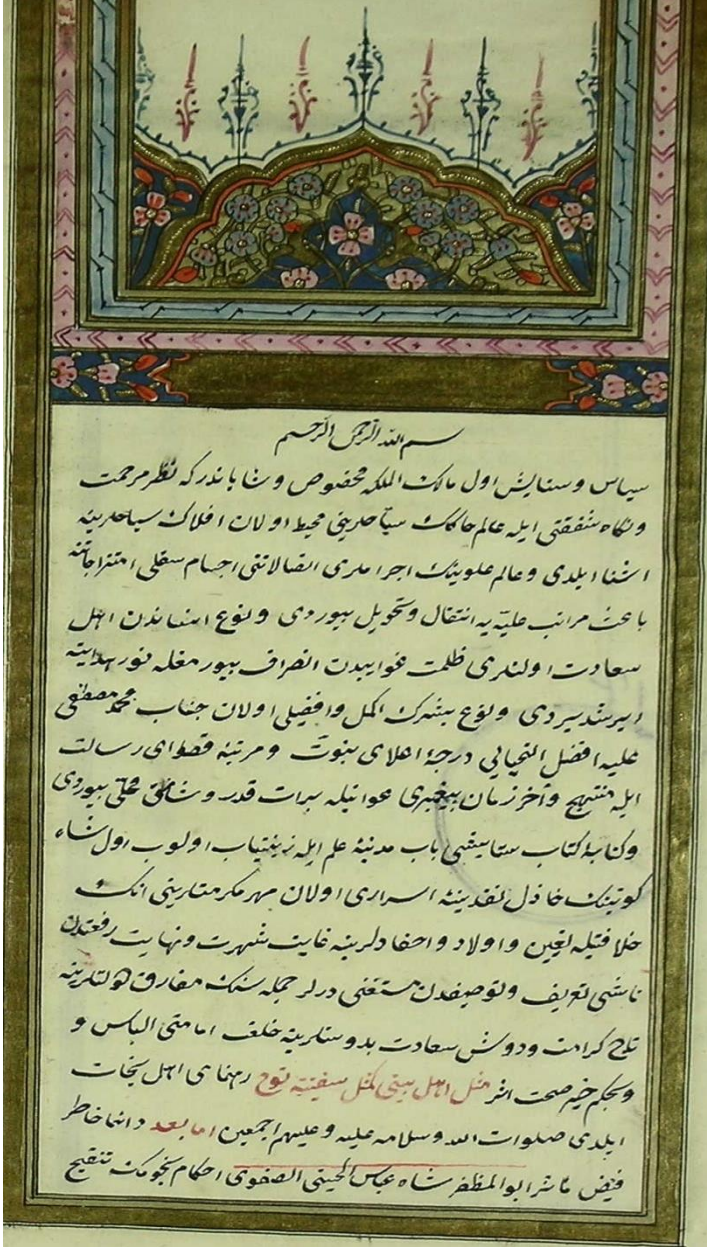 بسم الله الرحمن الرحيم
سپاس و ستايش اول مالك الملكه مخصوص و شاياندر كه نظر مرحمت
و نكاه شفقتى ايله عالم خاكك سياحلرينى محيط اولان افلاك سياحلرينه
اشنا ايلدى و عالم علوينك اجراملرى اتصالاتنى اجسام سفلى امتزاجاتنه
باعث مراتب عليه يه انتقال و تحويل بيوردى و نوع انساندن اهل
سعادت اولنلرى ظلمت غوايتدن انصراف بيورمغله نور هدايته
ايرشديردى و نوع بشرك اكمل و افضلى اولان جناب محمد مصطفى
عليه افضل التحيايى درجۀ اعلاى نبوت و مرتبۀ قصواى رسالت
ايله منتهج و آخر زمان پيغمبرى عنوانيله برات قدر و شانى محلى بيوردى
و كتابۀ كتاب ستايشى باب مدينۀ علم ايله زينتياب اولوب اول شاه
خازن نقدينۀ اسرارى اولان انك
خلافتيله تعيين و اولاد و احفادلرينه غايت شهرت و نهايت رفعتدن
ناشى تعريف و توصيفدن مستغنى درلر جمله سنك مفارق
تاج كرامت و دوش سعادت خلعت امامتى الباس و
و بحكم خبر صحت اثر مثل اهل بيتى كمثل سفينة نوح رهنماى اهل نجات
ايلدى صلوات الله و سلامه عليه و عليهم اجمعين اما بعد دائما خاطر
فيض مآثر ابو المظفر شاه عباس الحسينى الصفوى احكام نجومك تنقيح